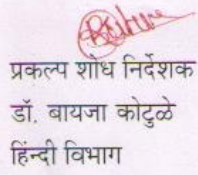 प्रकल्प शोध निर्देशक
डॉ. बायजा कोटुळे
हिन्दी विभाग